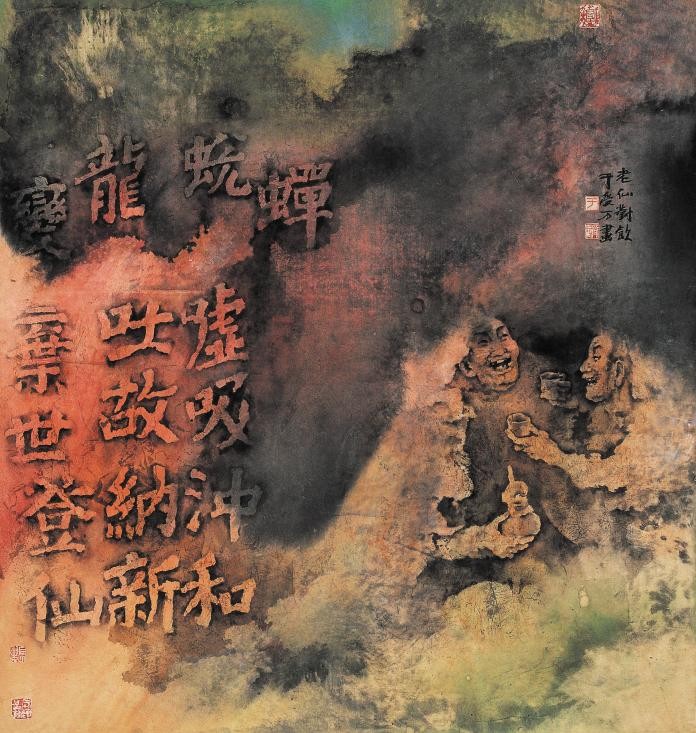 老仙對飲
于受万畫
嘘吸沖和
吐故納新
蟬蛻龍變
棄世登仙